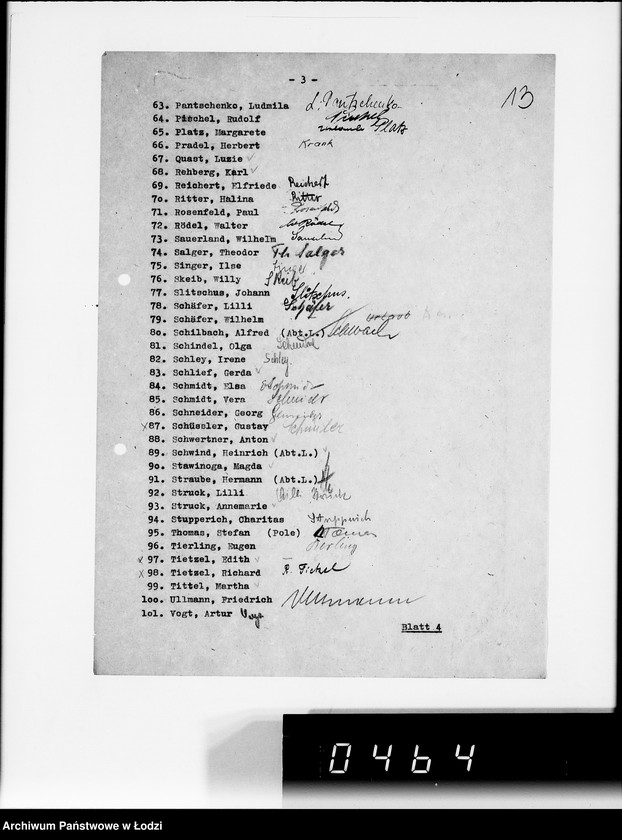 - 3 -
13
63. Pantschenko, Ludmila
64. Pieschel, Rudolf
65. Platz, Margarete Platz
66. Pradel, Herbert Krank
67. Quast, Luzie ✓
68. Rehberg, Karl ✓
69. Reichert, Elfriede Reichert
7o. Ritter, Halina Ritter
71. Rosenfeld, Paul
72. Rödel, Walter
73. Sauerland, Wilhelm
74. Salger, Theodor Th. Salger
75. Singer, Ilse Singer
76. Skeib, Willy
77. Slitschus, Johann
78. Schäfer, Lilli Schäfer
79. Schäfer, Wilhelm
8o. Schilbach, Alfred (Abt.L.)
81. Schindel, Olga
82. Schley, Irene Schley
83. Schlief, Gerda ✓
84. Schmidt, Elsa
85. Schmidt, Vera
86. Schneider, Georg
x87. Schüssler, Gustav
88. Schwertner, Anton ✓
89. Schwind, Heinrich (Abt.L.) ✓
9o. Stawinoga, Magda ✓
91. Straube, Hermann (Abt.L.)
92. Struck, Lilli
93. Struck, Annemarie ✓
94. Stupperich, Charitas
95. Thomas, Stefan (Pole)
96. Tierling, Eugen Tierling
x 97. Tietzel, Edith ✓
x 98. Tietzel, Richard
99. Tittel, Martha ✓
loo. Ullmann, Friedrich
lol. Vogt, Artur Vogt
Blatt 4
0464
Archiwum Państwowe w Łodzi